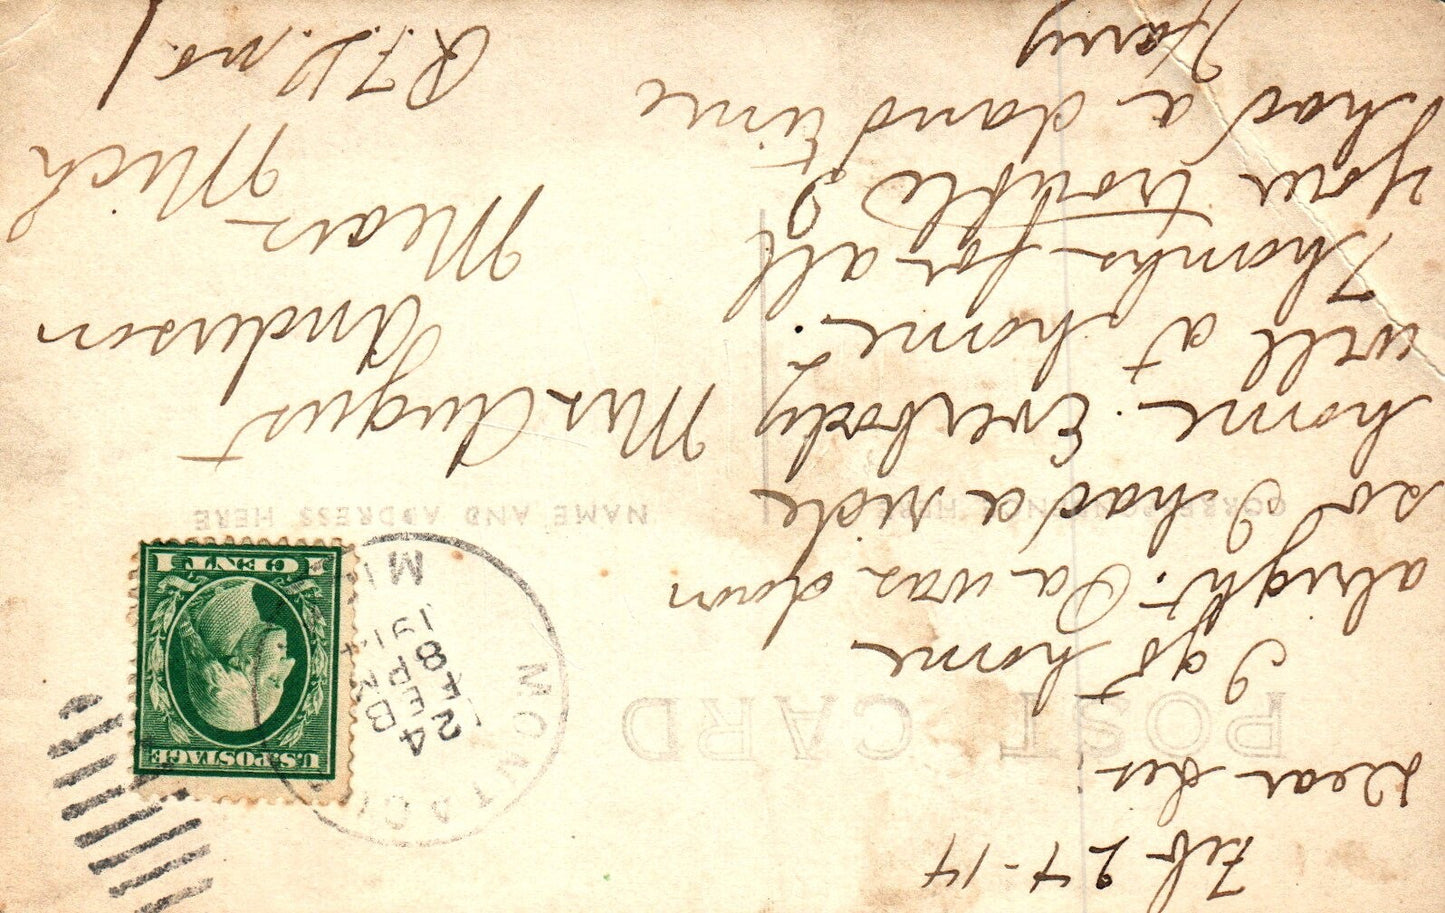 Feb 24-14
Dear Sis
I got home
alright. Pa was down
so I had a ride
home. Everbody
well at home.
Thanks for all
your trouble?
I had a dand time
Harry
POST CARD
CORRESPONDENCE HERE
NAME AND ADDRESS HERE
MONTAGUE
FEB
24
8 PM
1914
MICH
U.S. POSTAGE
1 CENT 1
Mrs August
Anderson
Mears
Mich
R.F.D. no. 1